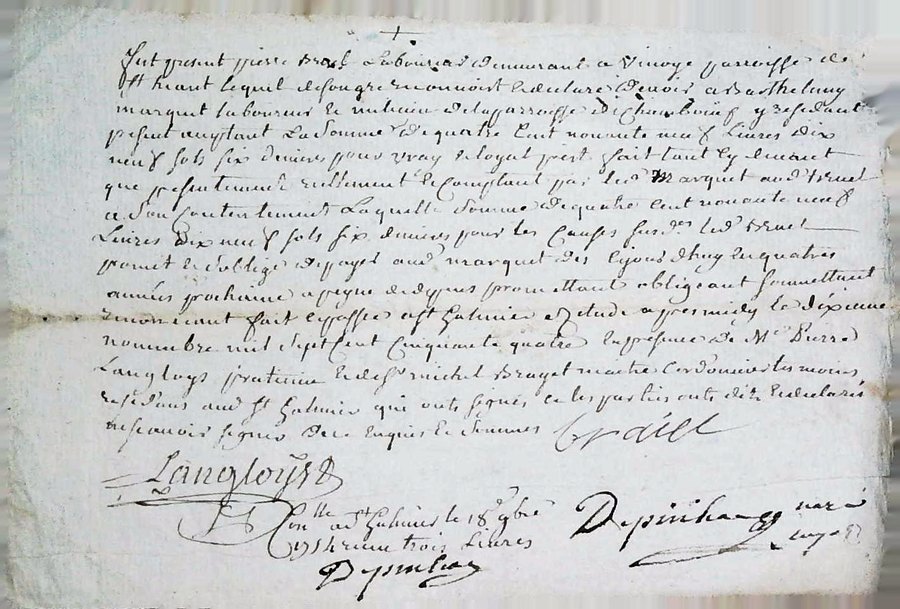 +
fut present pierre laboureur demeurant a Vinoye parroisse de
St lequel de son gre reconnoit et declare devoir a Barthelemy
marquet laboureur et de la parroisse de Chambœuf y residant
present acceptant la somme de quatre cent nonante neuf livres dix
neuf sols six deniers pour vray et loyal prest fait tant cy devant
que presentement reellement et comptant par led marquet aud
a son contentement laquelle somme de quatre cent nonante neuf
livres dix neuf sols six deniers pour les causes susd led
promet et s'oblige de payer aud marquet des cy jourd'huy en quatre
années prochaine a peyne de depens promettant obligeant soumettant
renonceant fait et passé a St Galmier etude apres midy le dixieme
novembre mil sept cent cinquante quatre en presence de Me Pierre
Langloys praticien et de Sr michel Brayet maitre cordonnier tesmoins
residans aud St Galmier qui ont signés et les parties ont dit et declarés
ne scavoir signer de ce enquis et sommés Braiet
Langloys
Conlle a St Galmier le 18e 9bre
1754 trois livres
Depinhac
Depinhac